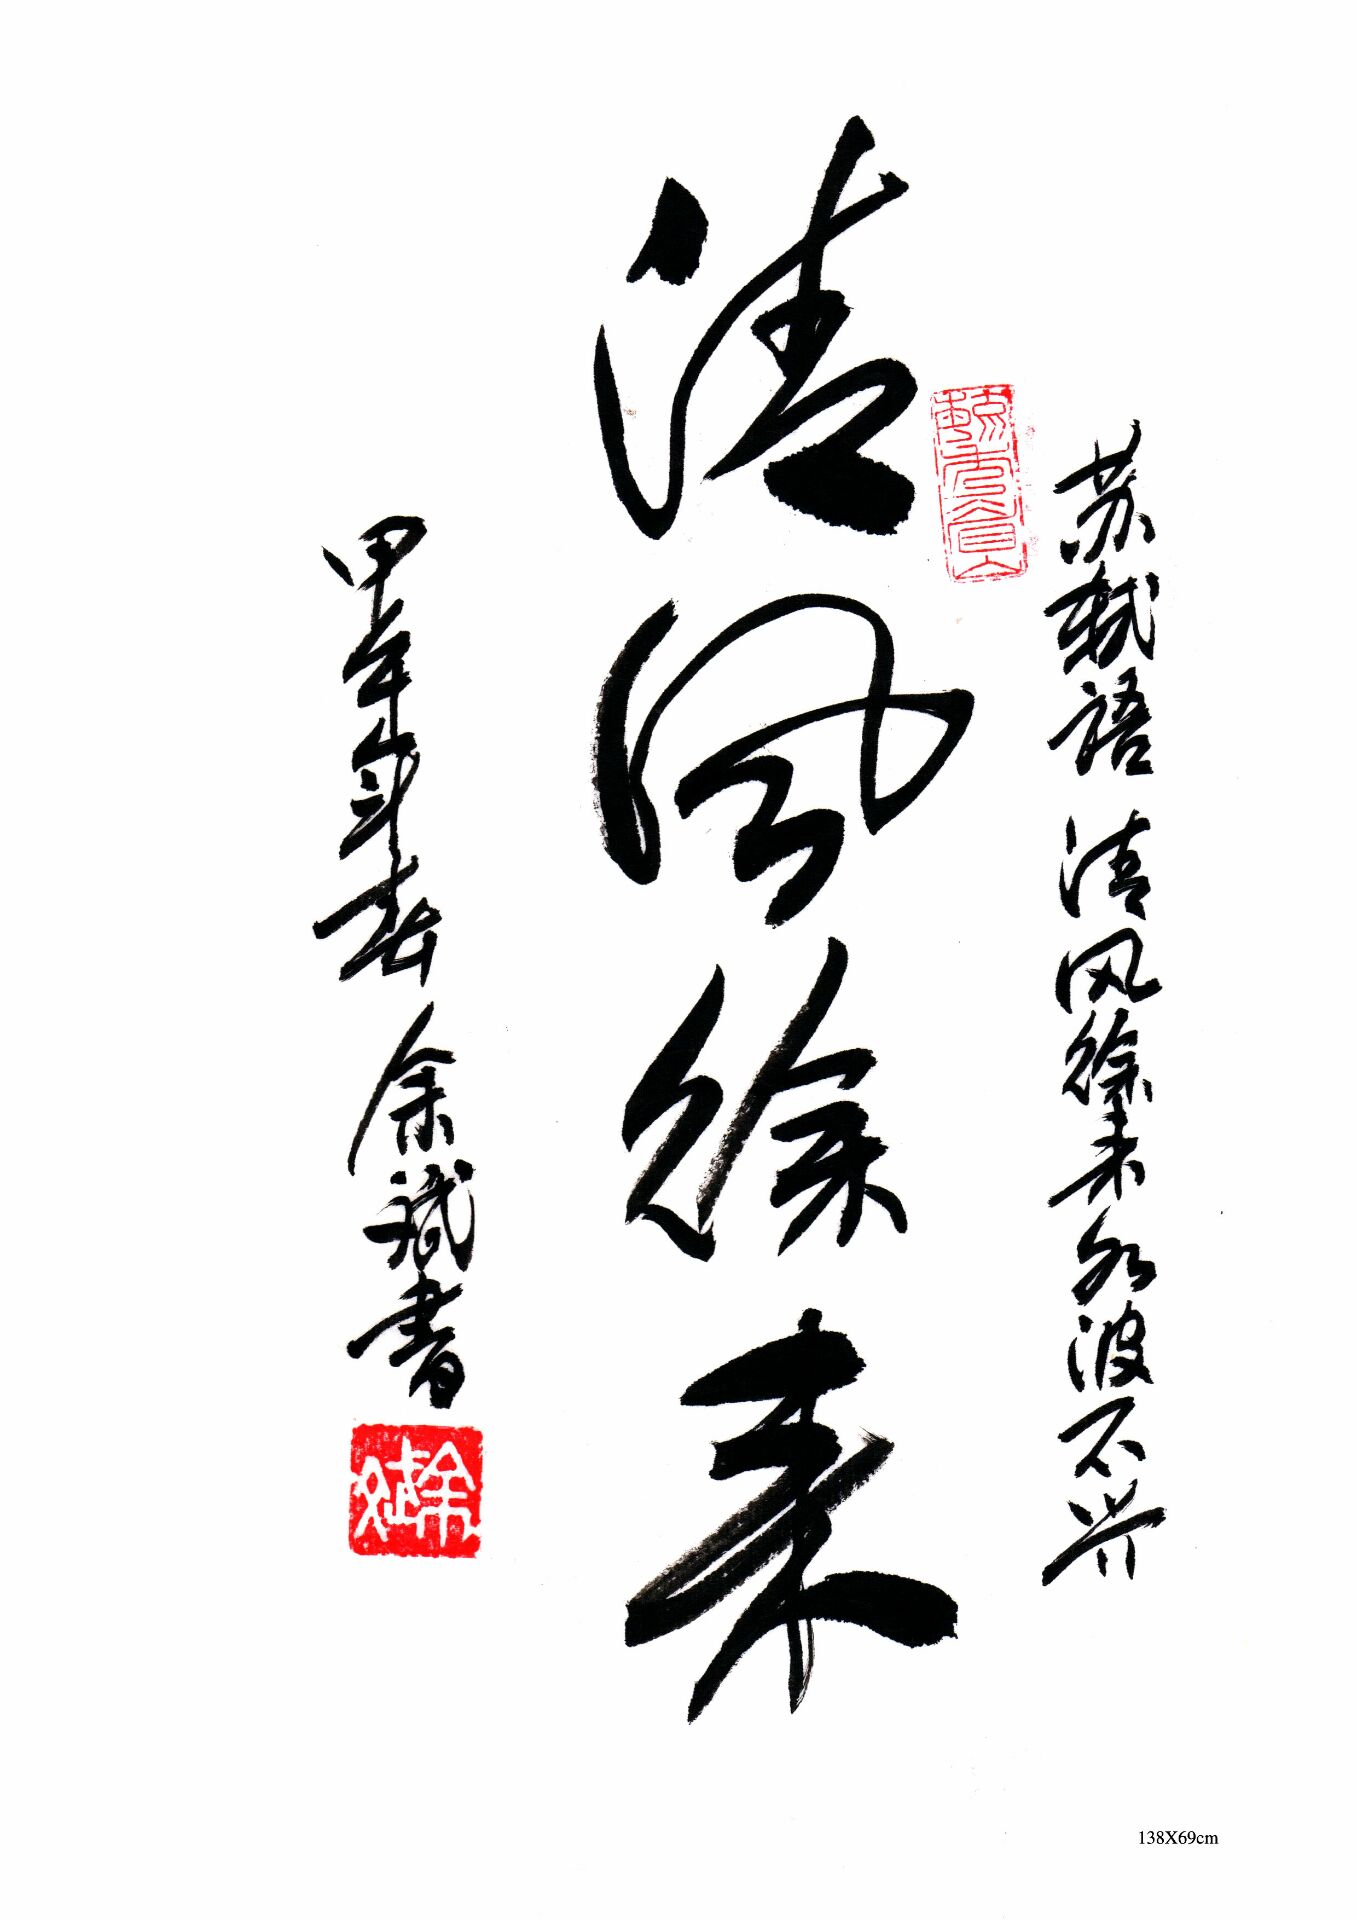 苏轼语 清风徐来水波不兴
清风徐来
甲午年春 余斌书
余斌
138X69cm